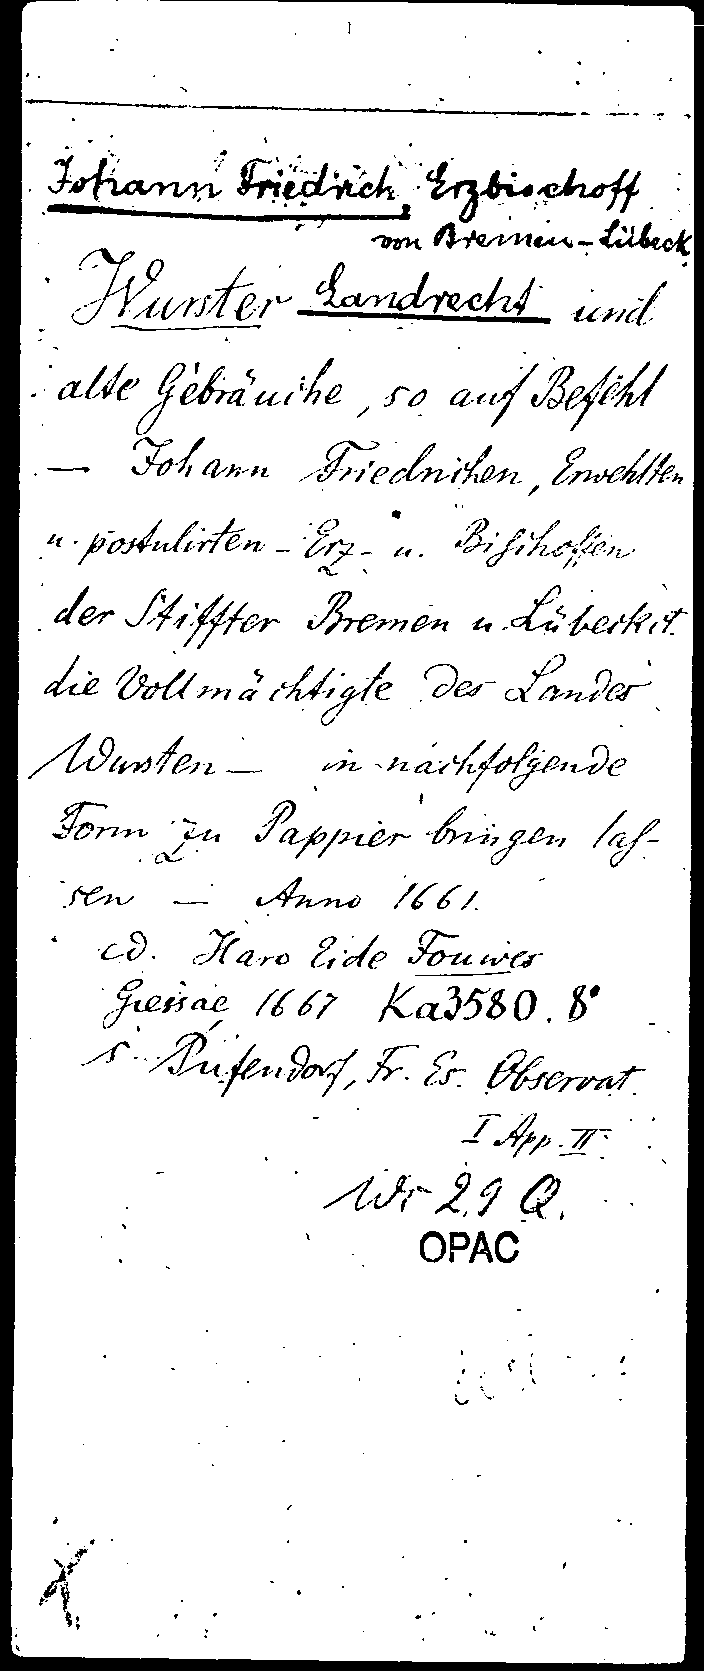 Johann Friedrich, Erzbischoff
von Bremen-Lübeck
Wurster Landrecht und
alte Gebräuche, so auf Befehl
— Johann Friedrichen, Erwehlten
u. postulirten - Erz- u. Bischoffen
der Stiffter Bremen u. Lübeck it.
die Vollmächtigte des Landes
Wursten — in nachfolgende
Form zu Pappier bringen las-
sen — Anno 1661.
ed. Haro Eide Fouwes
Giessae 1667 Ka3580. 8°
s. Pufendorf, Fr. Es. Observat.
I App. II.
Wr 29 Q.
OPAC